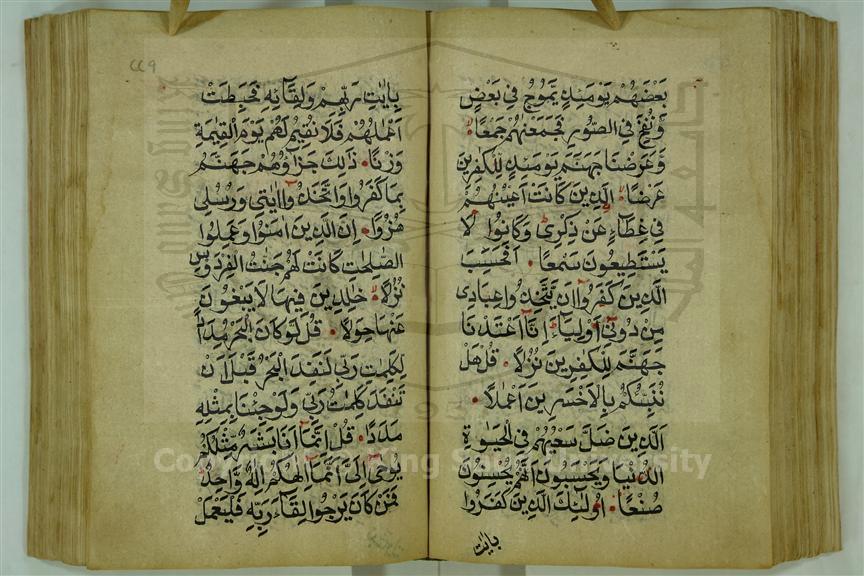 بَعْضَهُمْ يَوْمَئِذٍ يَّمُوْجُ فِيْ بَعْضٍ
وَّنُفِخَ فِي الصُّوْرِ فَجَمَعْنٰهُمْ جَمْعًا
وَّعَرَضْنَا جَهَنَّمَ يَوْمَئِذٍ لِّلْكٰفِرِيْنَ
عَرْضًا الَّذِيْنَ كَانَتْ اَعْيُنُهُمْ
فِيْ غِطَآءٍ عَنْ ذِكْرِيْ وَكَانُوْا لَا
يَسْتَطِيْعُوْنَ سَمْعًا اَفَحَسِبَ
الَّذِيْنَ كَفَرُوْا اَنْ يَّتَّخِذُوْا عِبَادِيْ
مِنْ دُوْنِيْ اَوْلِيَآءَ اِنَّا اَعْتَدْنَا
جَهَنَّمَ لِلْكٰفِرِيْنَ نُزُلًا قُلْ هَلْ
نُنَبِّئُكُمْ بِالْاَخْسَرِيْنَ اَعْمَالًا
الَّذِيْنَ ضَلَّ سَعْيُهُمْ فِي الْحَيٰوةِ
الدُّنْيَا وَيَحْسَبُوْنَ اَنَّهُمْ يُحْسِنُوْنَ
صُنْعًا اُولٰٓئِكَ الَّذِيْنَ كَفَرُوْا
بِاٰيٰتِ
٤٤٩
بِاٰيٰتِ رَبِّهِمْ وَلِقَآئِهٖ فَحَبِطَتْ
اَعْمٰلُهُمْ فَلَا نُقِيْمُ لَهُمْ يَوْمَ الْقِيٰمَةِ
وَزْنًا ذٰلِكَ جَزَآؤُهُمْ جَهَنَّمُ
بِمَا كَفَرُوْا وَاتَّخَذُوْا اٰيٰتِيْ وَرُسُلِيْ
هُزُوًا اِنَّ الَّذِيْنَ اٰمَنُوْا وَعَمِلُوا
الصّٰلِحٰتِ كَانَتْ لَهُمْ جَنّٰتُ الْفِرْدَوْسِ
نُزُلًا خٰلِدِيْنَ فِيْهَا لَا يَبْغُوْنَ
عَنْهَا حِوَلًا قُلْ لَّوْ كَانَ الْبَحْرُ مِدَادًا
لِّكَلِمٰتِ رَبِّيْ لَنَفِدَ الْبَحْرُ قَبْلَ اَنْ
تَنْفَدَ كَلِمٰتُ رَبِّيْ وَلَوْ جِئْنَا بِمِثْلِهٖ
مَدَدًا قُلْ اِنَّمَا اَنَا بَشَرٌ مِّثْلُكُمْ
يُوْحٰى اِلَيَّ اَنَّمَا اِلٰهُكُمْ اِلٰهٌ وَّاحِدٌ
فَمَنْ كَانَ يَرْجُوْا لِقَآءَ رَبِّهٖ فَلْيَعْمَلْ
Copyright © King Saud University